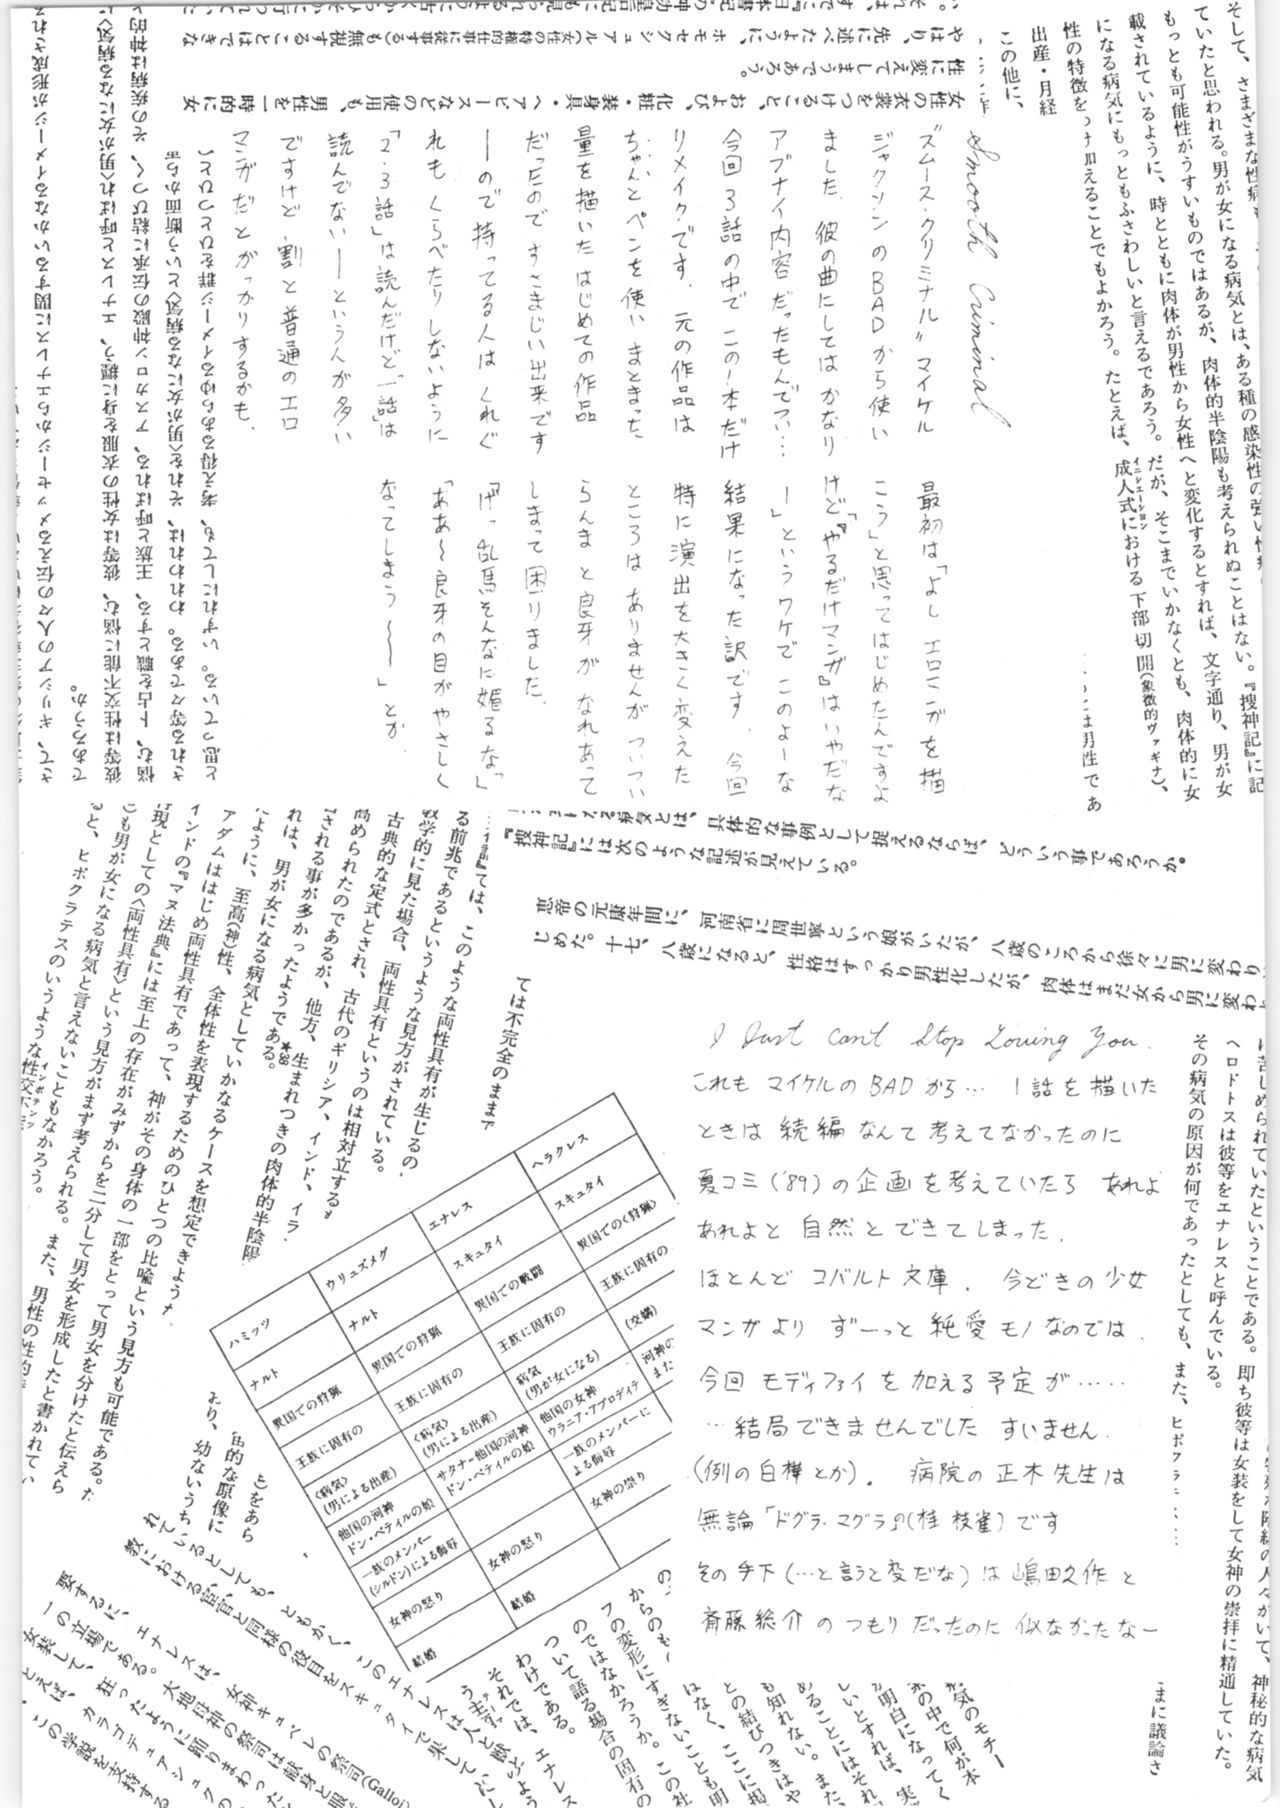 そして、さまざまな性病も
ていたと思われる。男が女になる病気とは、ある種の感染性の強い性病
もっとも可能性がうすいものではあるが、肉体的半陰陽も考えられぬことはない。『捜神記』に記
載されているように、時とともに肉体が男性から女性へと変化するとすれば、文字通り、男が女
になる病気にもっともふさわしいと言えるであろう。だが、そこまでいかなくとも、肉体的に女
性の特徴をつけ加えることでもよかろう。たとえば、成人式における下部切開(象徴的ヴァギナ)、
イニシエーション
出産・月経
は男性であ
この他に、
女性の衣裳をつけること、および、化粧・装身具・ヘアピースなどの使用も、男性を一時的に女
性に変えてしまうであろう。
やはり、先に述べたように、ホモセクシュアル(女性の特権的仕事に従事する)も無視することはできな
Smooth Criminal
"スムース・クリミナル" マイケル
ジャクソンのBADから使い
ました。彼の曲にしてはかなり
アブナイ内容だったもんでつい…
今回3話の中でこの1本だけ
リメイクです。元の作品は
ちゃんとペンを使いまとまった
量を描いたはじめての作品
だったのですさまじい出来です
ーので持ってる人はくれぐ
れもくらべたりしないように
「2.3話」は読んだけど「一話」は
読んでないーという人が多い
ですけど、割と普通のエロ
マンガだとがっかりするかも、
最初は「よしエロマンガを描
こう」と思ってはじめたんですよ
けど『やるだけマンガ』はいやだな
ー」というワケでこのよーな
結果になった訳です 今回
特に演出を大きく変えた
ところはありませんがついつい
らんまと良牙がなれあって
しまって困りました。
「げっ乱馬そんなに媚るなっ」
「ああ〜良牙の目がやさしく
なってしまう〜〜」とか
さて、ギリシアの人々の伝えるメッセージからエナレスに関するいかなるイメージが形成され
であろうか。
彼等は性交不能に悩む、彼等は女性の衣服を身に纏う、エナレスと呼ばれ〈男が女になる病気〉に
悩む、卜占を職とする、王族と呼ばれる、アスカロン神殿の伝承に結びつく、その疾病は神的
される等々である。われわれは、それを〈男が女になる病気〉という断面から
と思っている。いずれにしても、考え得るあらゆるイメージ群をひとつひと
病気とは、具体的な事例として捉えるならば、どういう事であろうか。
『捜神記』には次のような記述が見えている。
恵帝の元康年間に、河南省に周世寧という娘がいたが、八歳のころから徐々に男に変わり
じめた。十七、八歳になると、性格はすっかり男性化したが、肉体はまだ女から男に変わ
ては不完全のままで
ては、このような両性具有が生じるの
る前兆であるというような見方がされている。
教学的に見た場合、両性具有というのは相対立する
古典的な定式とされ、古代のギリシア、インド、イラ
高められたのであるが、他方、生まれつきの肉体的半陰陽
される事が多かったようである。★88
れは、男が女になる病気としていかなるケースを想定できよう
ように、至高(神)性、全体性を表現するためのひとつの比喩という見方も可能である。
アダムははじめ両性具有であって、神がその身体の一部をとって男女を分けたと伝えら
インドの『マヌ法典』には至上の存在がみずからを二分して男女を形成したと書かれてい
現としての〈両性具有〉という見方がまず考えられる。また、男性の性的
も男が女になる病気と言えないこともなかろう。
ると、ヒポクラテスのいうような性交
I Just Can't Stop Loving You.
これもマイケルのBADから… 1話を描いた
ときは続編なんて考えてなかったのに
夏コミ('89)の企画を考えていたら あれよ
あれよと自然とできてしまった。
ほとんどコバルト文庫。今どきの少女
マンガより ずーっと純愛モノなのでは。
今回モディファイを加える予定が……
…結局できませんでした すいません。
(例の白樺とか)。 病院の正木先生は
無論「ドグラ・マグラ」の(桂枝雀)です
その手下(…と言うと変だな)は嶋田久作と
斉藤総介のつもりだったのに似なかったなー
に苦しめられていたということである。即ち彼等は女装をして女神の崇拝に精通していた。
ヘロドトスは彼等をエナレスと呼んでいる。
その病気の原因が何であったとしても、また、ヒポクラテ
まに議論さ
ハミッツ
ナルト
異国での狩猟
王族に固有の
〈病気〉
(男による出産)
他国の河神
ドン・ベティルの娘
一族のメンバー
(シルドン)による侮辱
女神の怒り
結婚
ウリュズメグ
ナルト
異国での狩猟
王族に固有の
〈病気〉
(男による出産)
サタナ=他国の河神
ドン・ベティルの娘
女神の怒り
結婚
エナレス
スキュタイ
異国での戦闘
王族に固有の
病気
(男が女になる)
他国の女神
ウラニア・アプロディテ
一族のメンバーに
よる侮辱
女神の祟り
ヘラクレス
スキュタイ
異国での〈狩猟〉
王族に固有の
(交媾)
河神の
また
をあら
的な原像に
おり、幼ないうち
れているとしても、ともかく、このエナレスは
教における宦官と同様の役目をスキュタイで果して
要するに、エナレスは、女神キュベレの祭司(Galloi)
一の立場である。大地母神の祭司は献身と服
女装して、狂ったように踊りまわった
とえば、カラコデュアシュクの
この学説を支持する
からのも
フの変形にすぎないことも明
のではなかろうか。この社
ついて語る場合の固有の
わけである。
それでは、エナレス
病気のモチー
の中で何が本
が明白になってく
しいとすれば、実
めることにはそれ
も知れない。また、
との結びつきはや
はなく、ここに掲